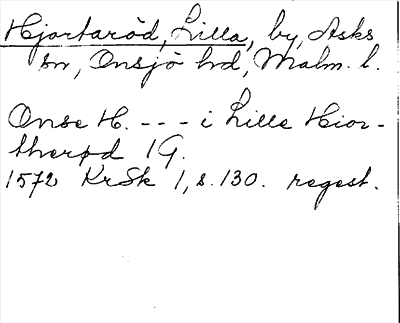 Hjortaröd, Lilla, by, Asks
sn, Onsjö hd, Malm. l.
Onse H. - - - i Lille Hior-
therød 1 G.
1572 KrSk 1, s. 130. regest.